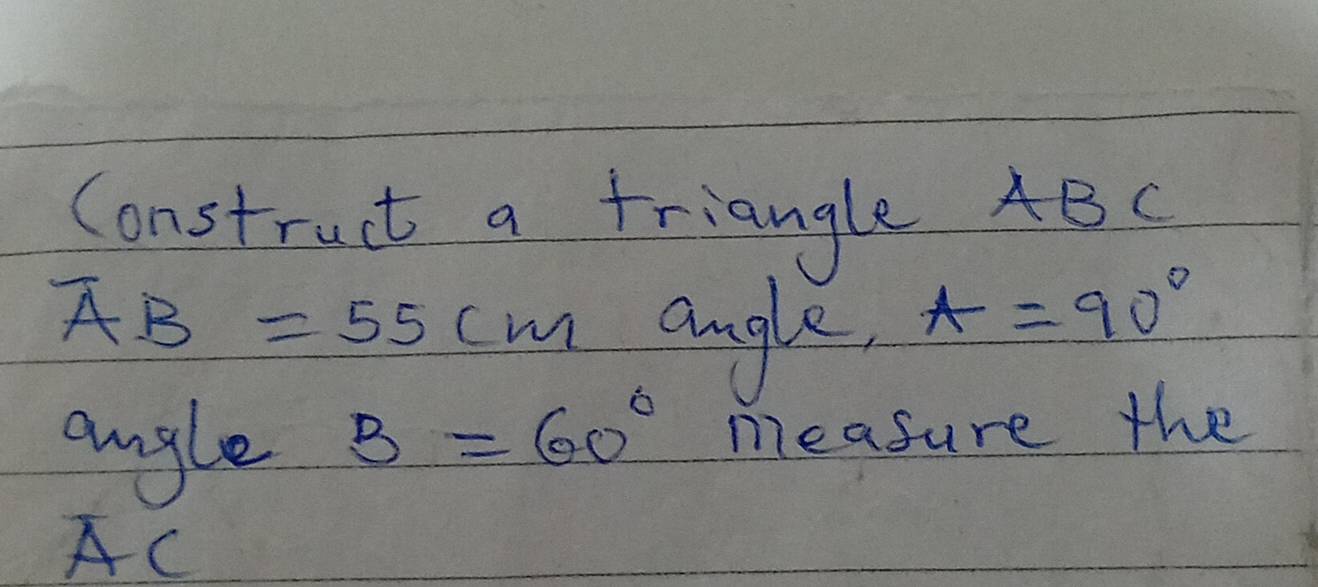 Construct a triangle ABC
A̅B = 55cm angle, A = 90°
angle B = 60° measure the
A̅C